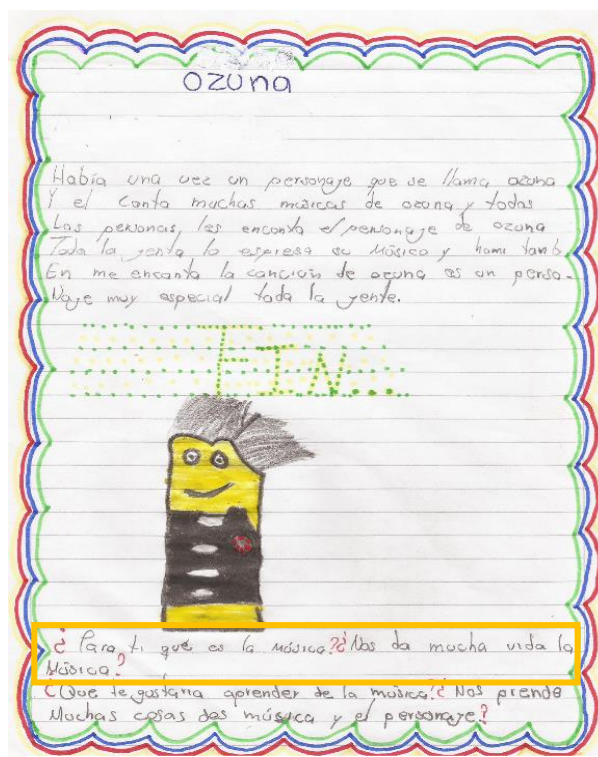 Ozuna
Había una vez un personaje que se llama ozuna
Y el canta muchas músicas de ozuna y todas
Las personas, les encanta el personaje de ozuna
Toda la yenta lo espresa su Músico y hami tamb
En me encanta la canción de ozuna es un perso-
Naje muy especial toda la yente.
FIN.
¿Para ti qué es la música?¿Nos da mucha vida la
Música?
¿Que te gustaria aprender de la música?¿Nos prende
Muchas cosas das música y el personaje?